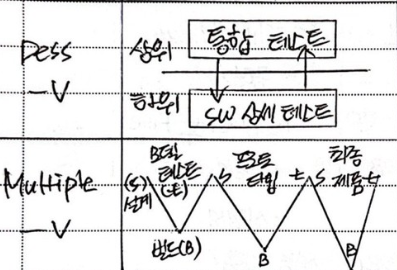 Dess
-V
상위
통합 테스트
하위
SW 상세 테스트
Multiple
-V
(S)
설계
모델
테스트
(t)
빌드(B)
S
프로토
타입
t
B
S
최종
제품
t
B